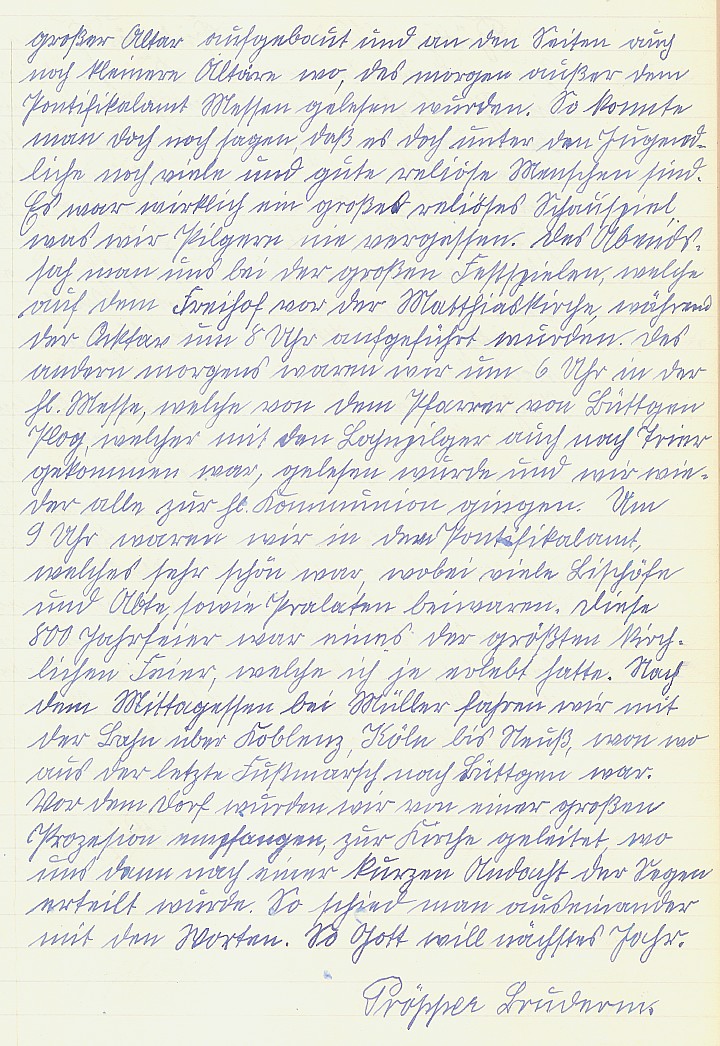 großer Altar aufgebaut und an den Seiten auch
noch kleinere Altäre wo, des morgen außer dem
Pontifikalamt Messen gelesen wurden. So konnte
man doch noch sagen, daß es doch unter den Jugend-
liche noch viele und gute reliöse Menschen sind.
Es war wirklich ein großes reliöses Schauspiel
was wir Pilgern nie vergessen. Des Abends
sah man uns bei der großen Festspielen, welche
auf dem Freihof vor der Matthiaskirche, während
der Ocktav um 8 Uhr aufgeführt wurden. Des
andern morgens waren wir um 6 Uhr in der
hl. Messe, welche von dem Pfarrer von Büttgen
Plog, welcher mit den Bahnpilger auch nach Trier
gekommen war, gelesen wurde und wir wie-
der alle zur hl. Kommunion gingen. Um
9 Uhr waren wir in dem Pontifikalamt,
welches sehr schön war, wobei viele Bischöfe
und Äbte, sowie Pralaten beiwaren. Diese
800 Jahrfeier war eines der größten kirch-
lichen Feier, welche ich je erlebt hatte. Nach
dem Mittagessen bei Müller fahren wir mit
der Bahn über Koblenz, Köln bis Neuß, won wo
aus der letzte Fußmarsch nach Büttgen war.
Vor dem Dorf wurden wir von einer großen
Prozesion empfangen, zur Kirche geleitet, wo
uns dann nach einer kurzen Andacht der Segen
erteilt wurde. So schied man auseinander
mit den Worten. So Gott will nächstes Jahr.
Pröpper Bruderm.